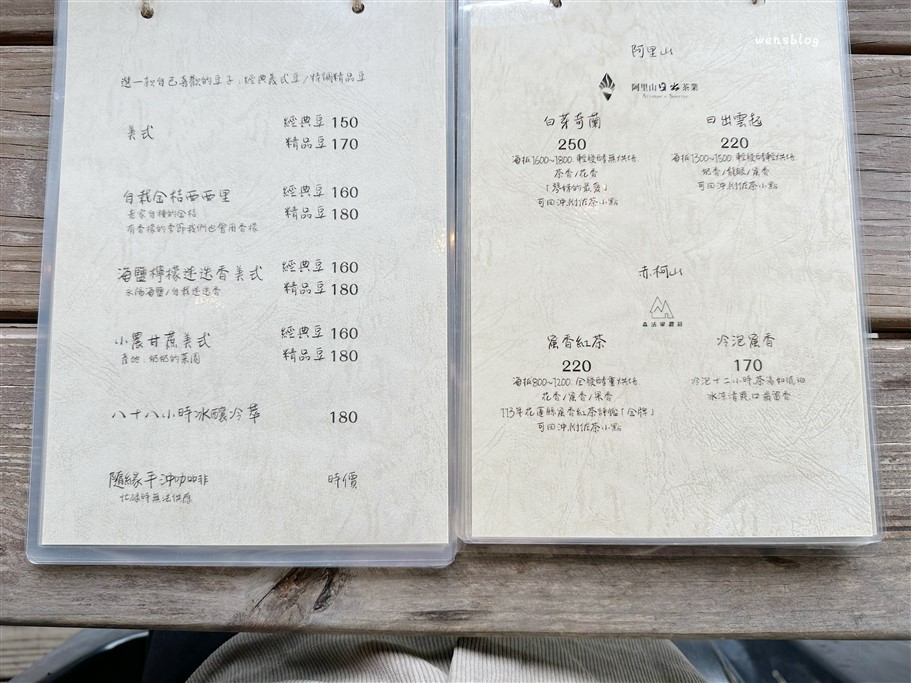 選一款自己喜歡的豆子:經典義式豆/特調精品豆
美式
經典豆 150
精品豆 170
自栽金桔西西里
經典豆 160
精品豆 180
老家自種的金桔
有香檬的季節我們也會用香檬
海鹽檸檬迷迭香美式
經典豆 160
精品豆 180
永浴海鹽/自栽迷迭香
小農甘蔗美式
經典豆 160
精品豆 180
產地:奶奶的菜園
八十八小時冰釀冷萃
180
隨緣手沖咖啡
時價
忙碌時無法供應
wensblog
阿里山
阿里山日出茶業
白芽奇蘭
250
海拔1600~1800.輕發酵無烘焙
茶香/花香
可回沖.附佐茶小點
日出雲起
220
海拔1300~1500.輕發酵輕烘焙
可回沖.附佐茶小點
赤柯山
蜜香紅茶
220
海拔800~1200.全發酵重烘焙
花香/蜜香/果香
113年花蓮縣蜜香紅茶評鑑「金牌」
可回沖.附佐茶小點
冷泡蜜香
170
冷泡十二小時.茶湯如琥珀
冰涼清爽.口齒留香